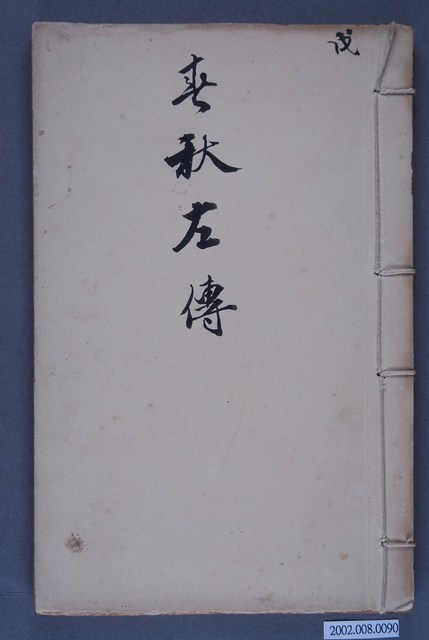 戊
春秋左傳
2002.008.0090